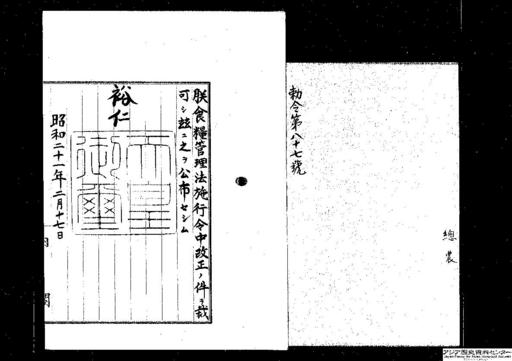 勅令第八十七號
總農
朕食糧管理法施行令中改正ノ件ヲ裁
可シ茲ニ之ヲ公布セシム
裕仁
天皇御璽
昭和二十一年二月十七日
内閣
アジア歴史資料センター